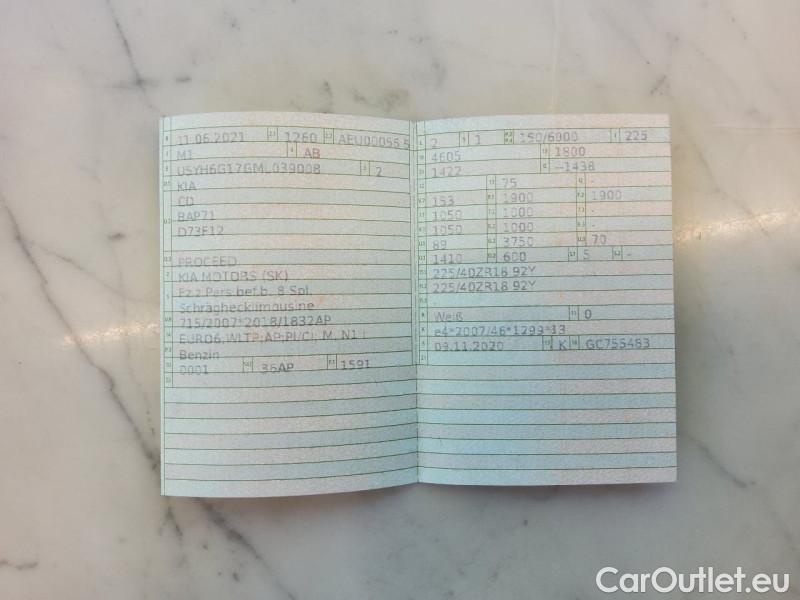 11.06.2021 1260
M1 AB
U5YH6G17GML039008 2
KIA
CD
BAP71
PROCEED
KIA MOTORS (SK)
Fz.z.Pers.bef.b. 8 Spl.
Schräghecklimousine
715/2007*2018/1832AP
EURO6,WLTP;AP;PI/CI; M, N1 I
Benzin
0001 36AP 1591
2 1 150/6000 225
4605 1800
1422 –1438
75 -
153 1900 1900
1050 1000 -
1050 1000 -
89 3750 70
1410 600 5 -
225/40ZR18 92Y
225/40ZR18 92Y
-
Weiß 0
e4*2007/46*1299*13
09.11.2020 K GC755483
CarOutlet.eu